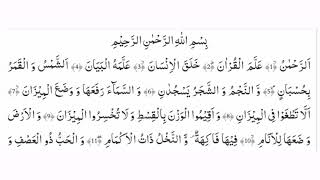 بِسْمِ اللّٰهِ الرَّحْمٰنِ الرَّحِيْمِ
اَلرَّحْمٰنُ ﴿1﴾ عَلَّمَ الْقُرْاٰنَ ﴿2﴾ خَلَقَ الْاِنْسَانَ ﴿3﴾ عَلَّمَهُ الْبَيَانَ ﴿4﴾ اَلشَّمْسُ وَ الْقَمَرُ
بِحُسْبَانٍ ﴿5﴾ وَّ النَّجْمُ وَ الشَّجَرُ يَسْجُدٰنِ ﴿6﴾ وَ السَّمَآءَ رَفَعَهَا وَ وَضَعَ الْمِيْزَانَ ﴿7﴾
اَلَّا تَطْغَوْا فِى الْمِيْزَانِ ﴿8﴾ وَ اَقِيْمُوا الْوَزْنَ بِالْقِسْطِ وَ لَا تُخْسِرُوا الْمِيْزَانَ ﴿9﴾ وَ الْاَرْضَ
وَ ضَعَهَا لِلْاَنَامِ ﴿10﴾ فِيْهَا فَاكِهَةٌ وَّ النَّخْلُ ذَاتُ الْاَكْمَامِ ﴿11﴾ وَ الْحَبُّ ذُو الْعَصْفِ وَ